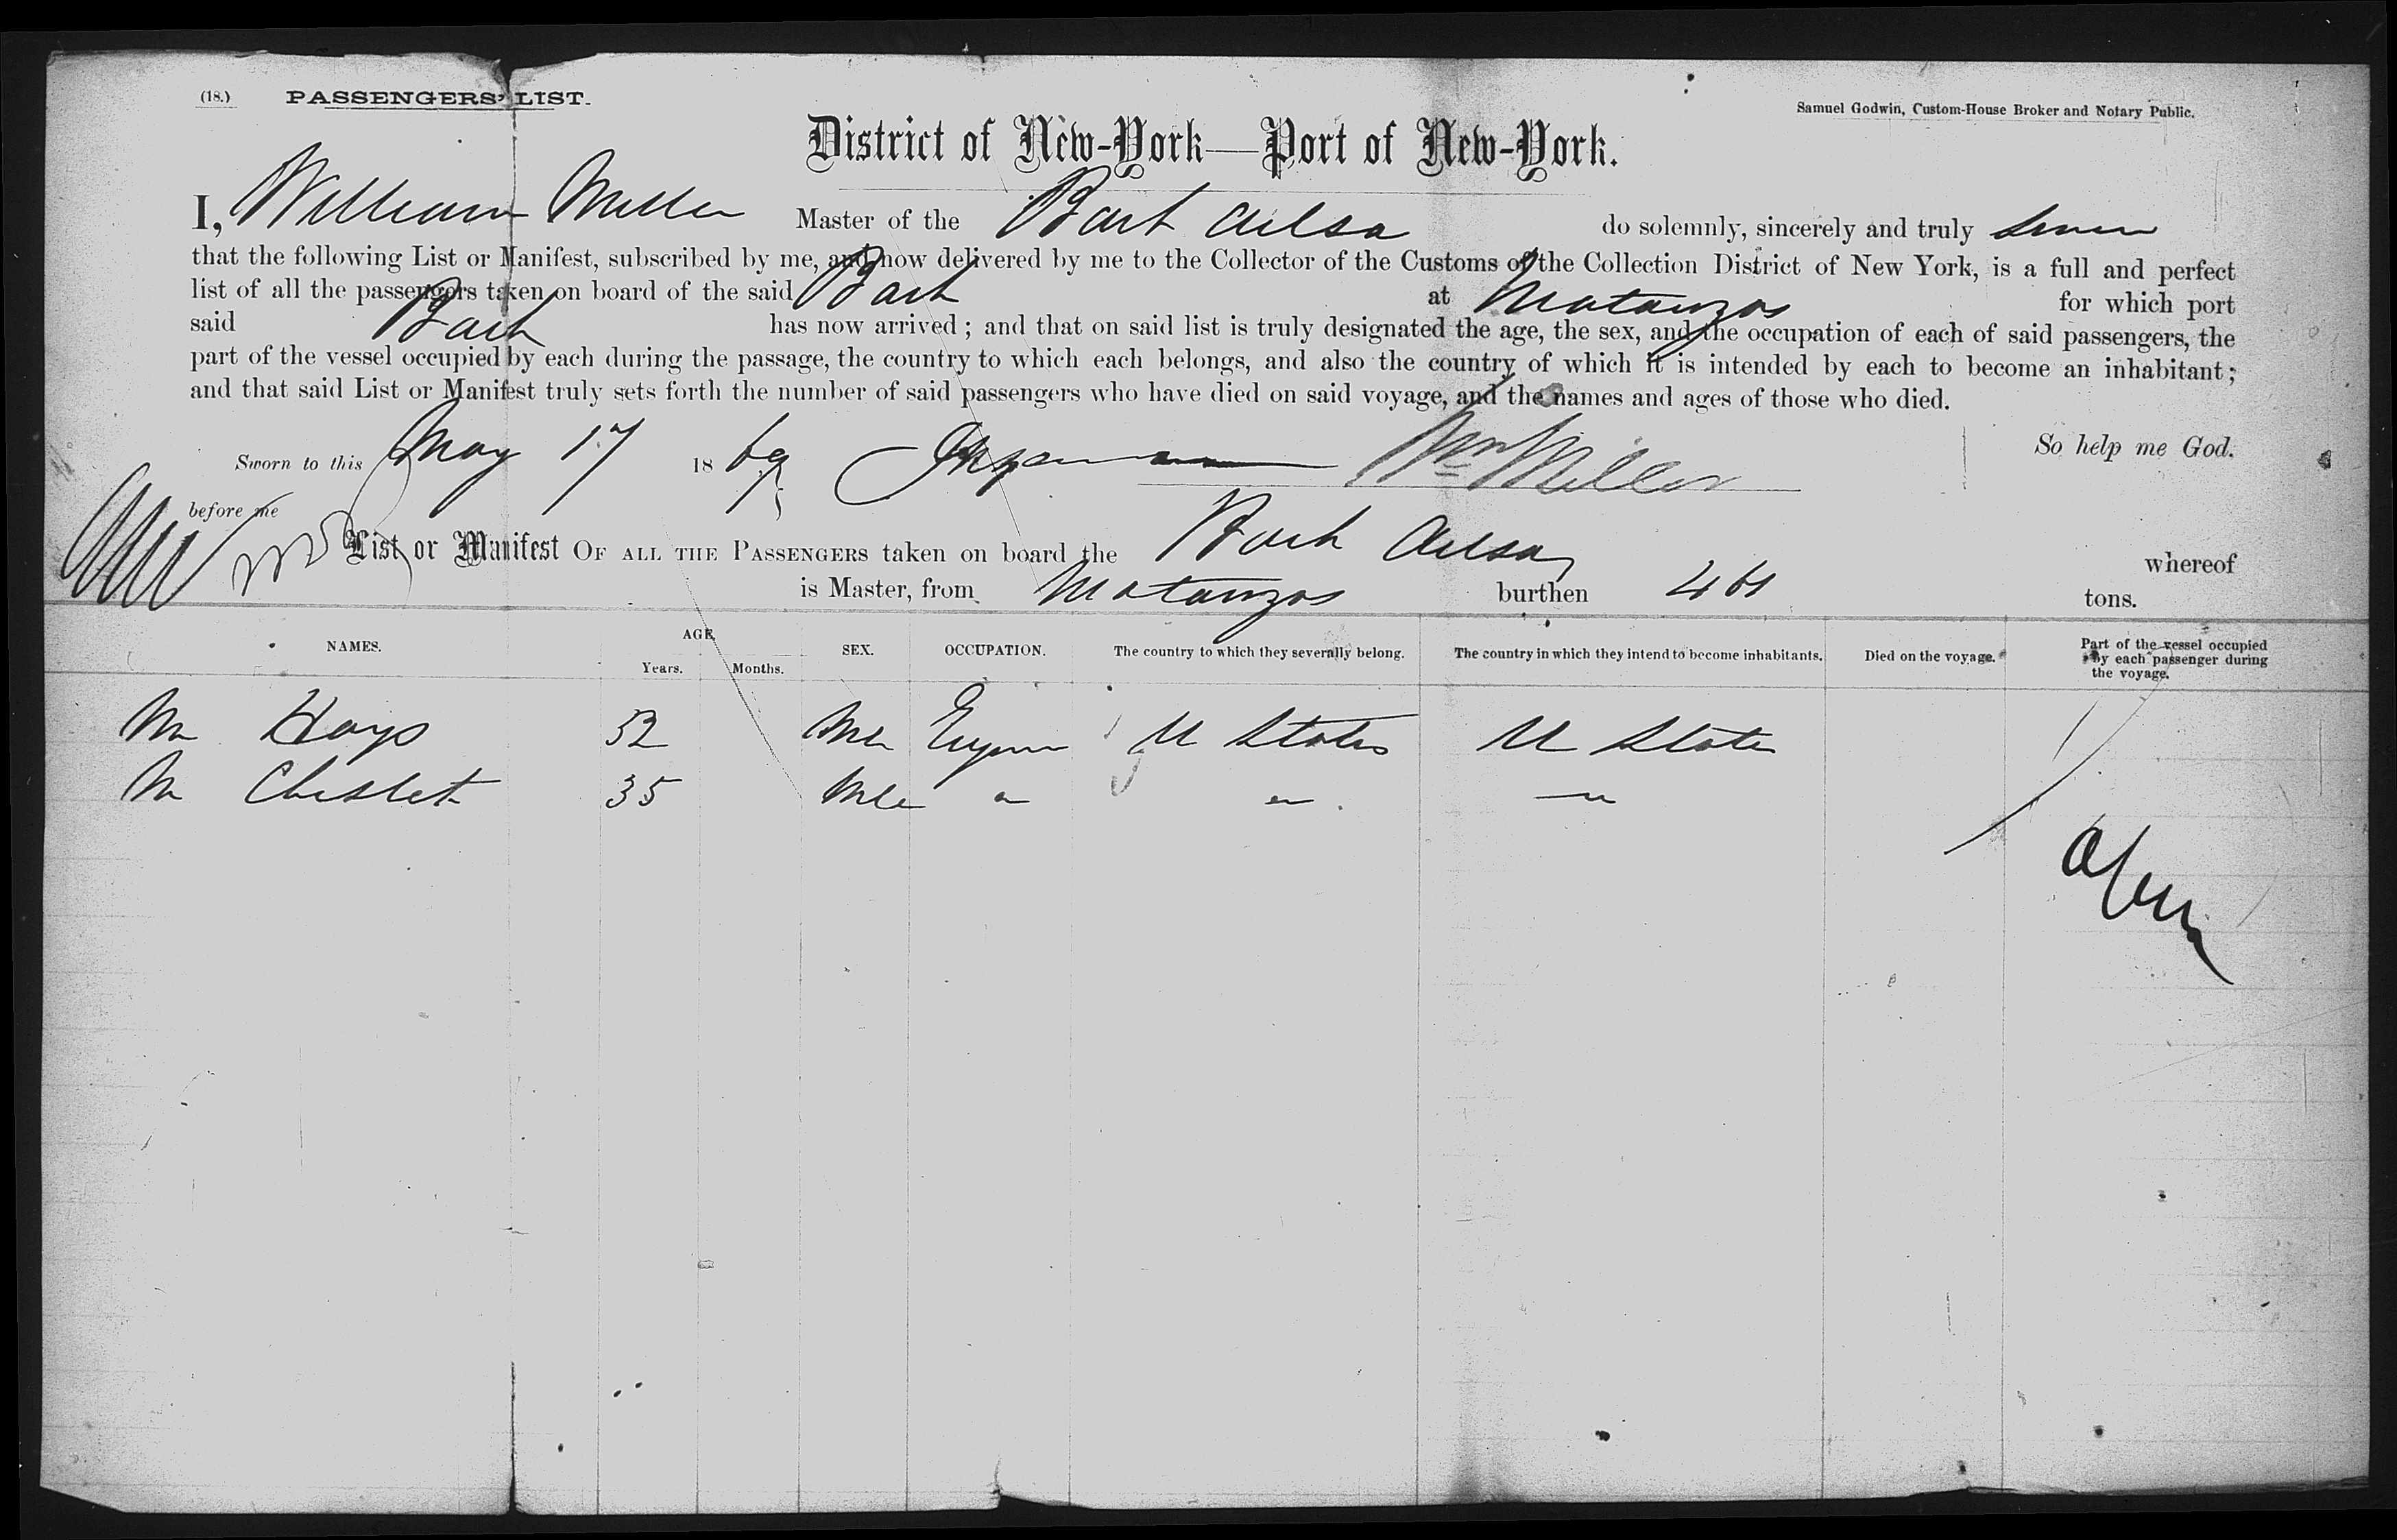 (18.) PASSENGERS' LIST.
Samuel Godwin, Custom-House Broker and Notary Public.
District of New-York—Port of New-York.
I, William Miller Master of the Bark Ailsa do solemnly, sincerely and truly swear
that the following List or Manifest, subscribed by me, and now delivered by me to the Collector of the Customs of the Collection District of New York, is a full and perfect
list of all the passengers taken on board of the said Bark at Matanzas for which port
said Bark has now arrived; and that on said list is truly designated the age, the sex, and the occupation of each of said passengers, the
part of the vessel occupied by each during the passage, the country to which each belongs, and also the country of which it is intended by each to become an inhabitant;
and that said List or Manifest truly sets forth the number of said passengers who have died on said voyage, and the names and ages of those who died.
Sworn to this May 17 1869 Wm Miller So help me God.
before me
List or Manifest OF ALL THE PASSENGERS taken on board the Bark Ailsa whereof
is Master, from Matanzas burthen 461 tons.
NAMES. AGE. Years. Months. SEX. OCCUPATION. The country to which they severally belong. The country in which they intend to become inhabitants. Died on the voyage. Part of the vessel occupied by each passenger during the voyage.
Mr Hays 52 Mle U States U States
Mr 35 Mle " " "